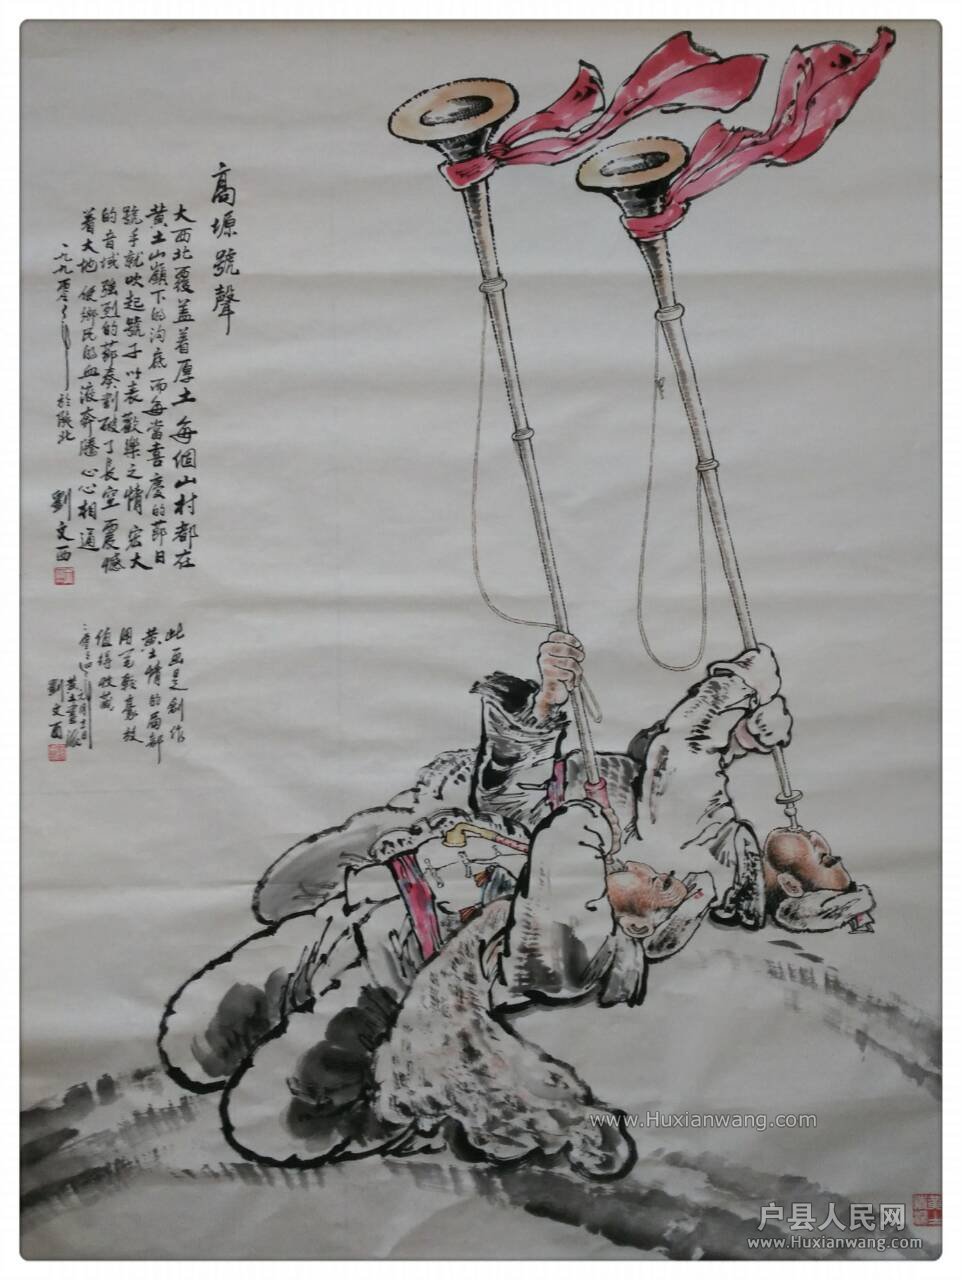 高塬號聲
大西北覆盖着厚土每個山村都在
黄土山嶺下的沟底而每當喜慶的節日
號手就吹起號子以表歡樂之情宏大
的音域強烈的節奏划破了長空震憾
着大地使鄉民的血液奔騰心心相通
一九九零年於陝北
劉文西
此画是創作
黄土情的局部
用笔乾豪放
值得收藏
黄土畫派
劉文西
www.Huxianwang.com
户县人民网
www.Huxianwang.com